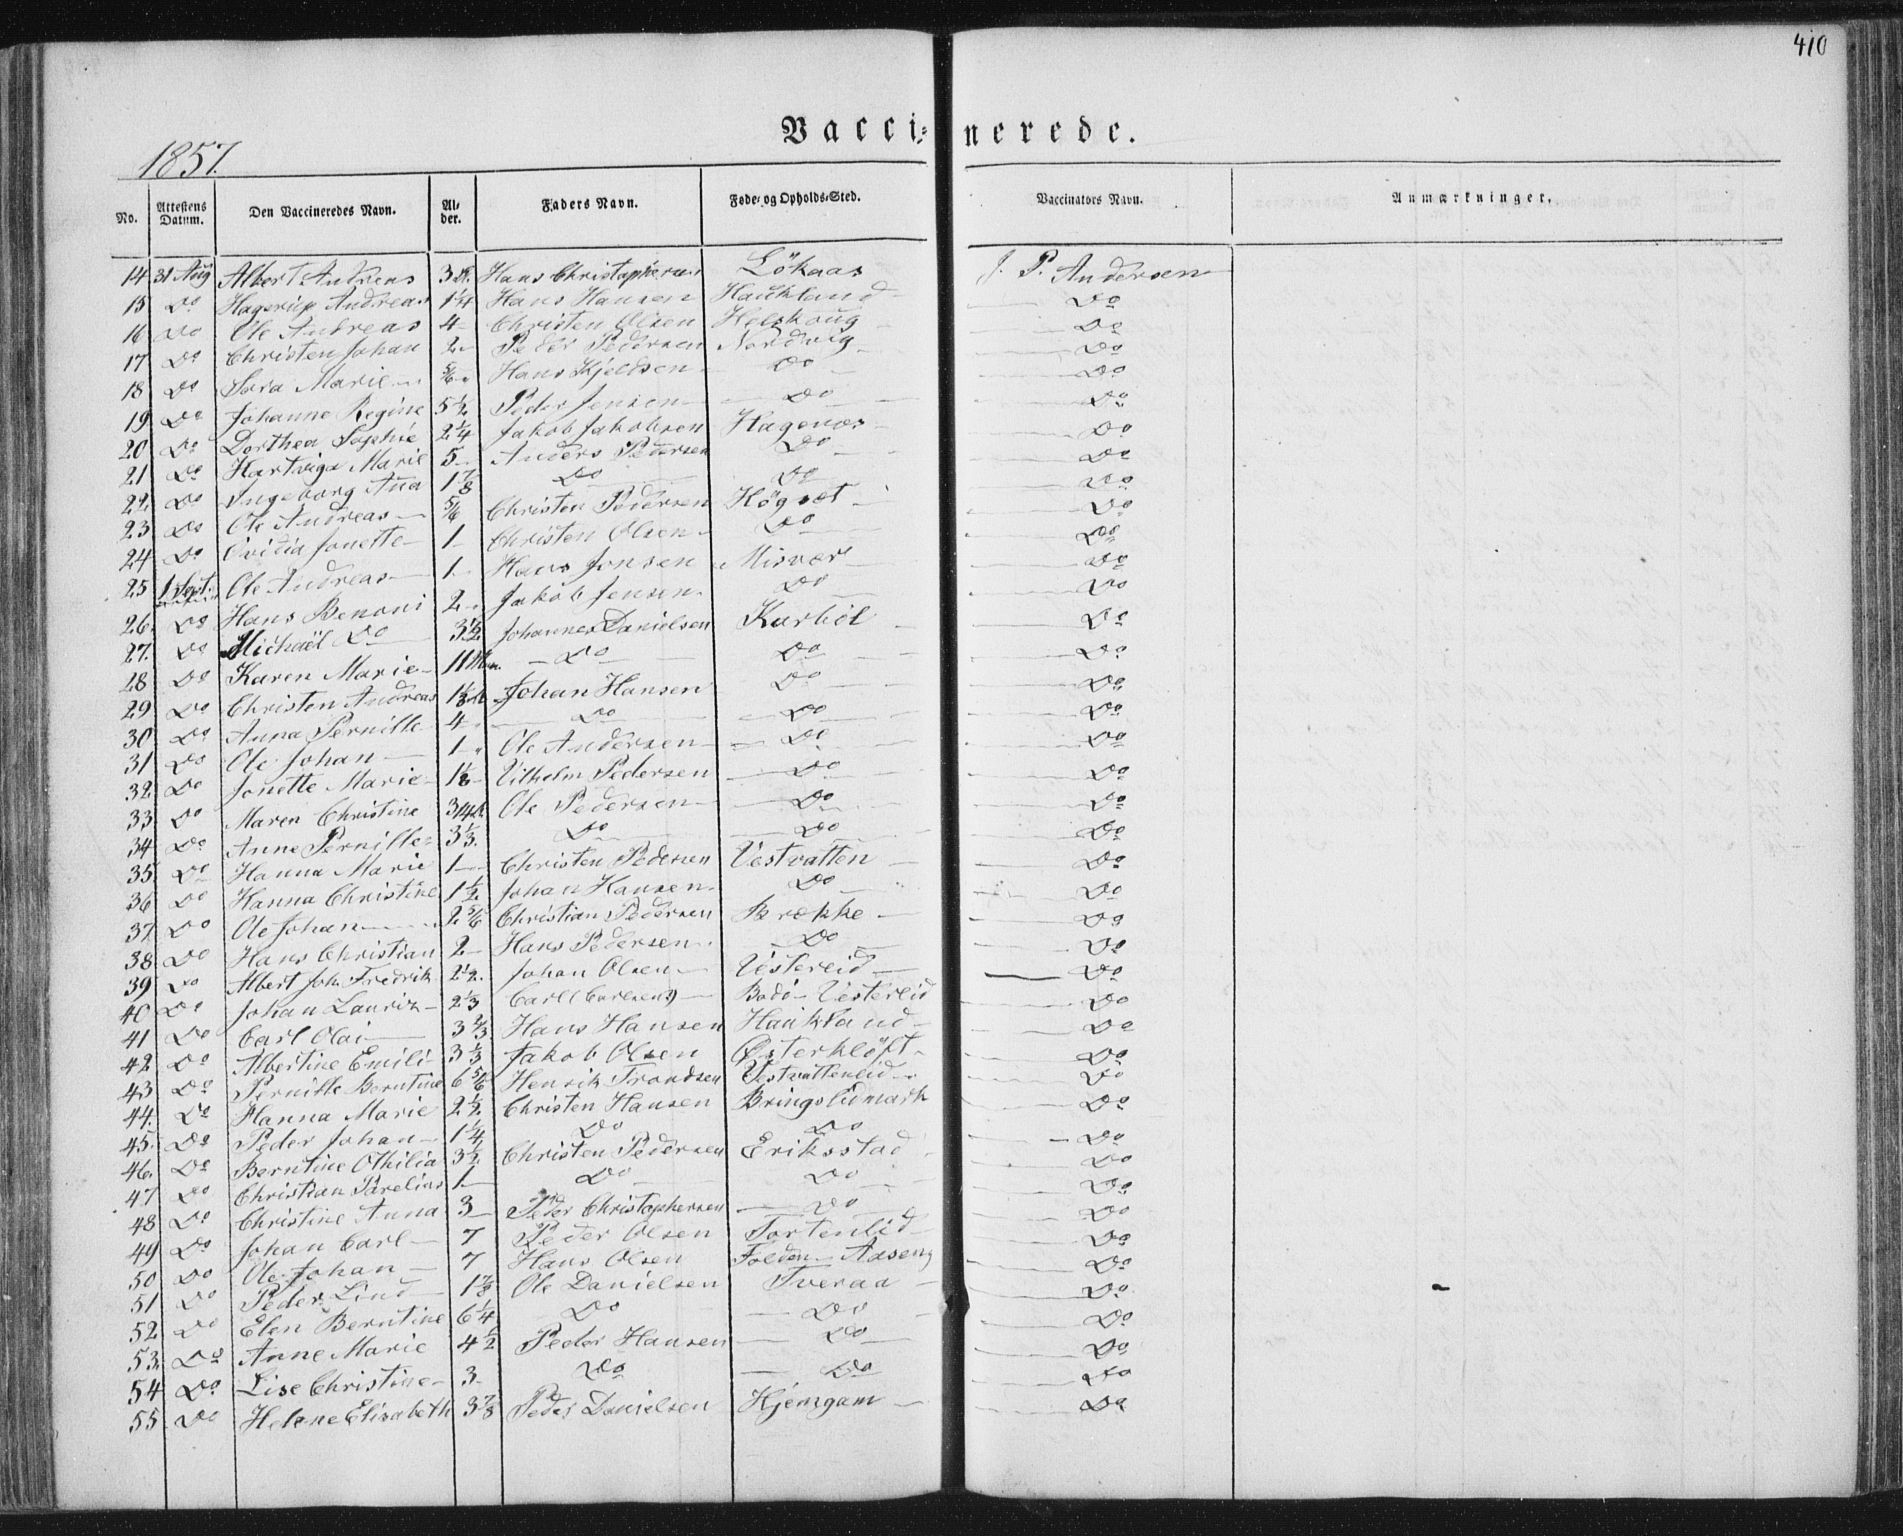 410
Vaccinerede.
1857.
No. Attestens Datum. Den Vaccineredes Navn. Alder. Faders Navn. Føde- og Opholds-Sted. Vaccinators Navn. Anmærkninger.
14 31 Aug Albert Andreas 3 Hans Christophersen Lökaas J. P. Andersen
15 Do Hagerup Andreas 1 1/4 Hans Hansen Haukland Do
16 Do Ole Andreas 4 Christen Olsen Helskoug Do
17 Do Christen Johan 2 Peder Pedersen Nordvig Do
18 Do Sara Marie 5/6 Hans Kjeldsen Do Do
19 Do Johanne Regine 5 1/2 Peder Jensen Do Do
20 Do Dorthea Sophie 2 1/4 Jakob Jakobsen Hagenæs Do
21 Do Hartviga Marie 5 Anders Pedersen Do Do
22 Do Ingeborg Ana 1 7/8 Do Do Do
23 Do Ole Andreas 5/6 Christen Pedersen Högset Do
24 Do Ovidia Jonette 1 Christen Olsen Do Do
25 1 Sept. Ole Andreas 1 Hans Jonsen Misvær Do
26. Do Hans Benoni 2 Jakob Jensen Do Do
27. Do Michaël Do 3 1/2 Johannes Danielsen Karböl Do
28 Do Karen Marie 11 Mn. Do Do Do
29 Do Christen Andreas Johan Hansen Do Do
30 Do Anna Pernille 4 Do Do Do
31 Do Ole Johan 1 Ole Andersen Do Do
32 Do Jonette Marie Vilhelm Pedersen Do Do
33 Do Maren Christine Ole Pedersen Do Do
34 Do Anne Pernille 3 1/3 Do Do Do
35 Do Hanna Marie 1 Christen Pedersen Vestvatten Do
36 Do Hanna Christine 1 1/2 Johan Hansen Do Do
37 Do Ole Johan 2 5/6 Christian Pedersen Brække Do
38 Do Hans Christian 2 Hans Pedersen Do Do
39 Do Albert Joh. Fredrik 2 1/2 Johan Olsen Vestereid Do
40 Do Johan Lauriz 2 1/3 Carl Carlsen Bodö Vestereid Do
41 Do Carl Olai 3 2/3 Hans Hansen Haukland Do
42 Do Albertine Emili 3 1/3 Jakob Olsen Østerklöft Do
43 Do Pernille Berntine 6 5/6 Henrik Trondsen Vestvatteneid Do
44. Do Hanna Marie 2 1/2 Christen Hansen Bringslidmark Do
45. Do Peder Johan 1 1/4 Do Do Do
46. Do Berntine Othilia 3 1/2 Christen Pedersen Eriksstad Do
47 Do Christian Parelius 1 Do Do Do
48 Do Christine Anna 3 Peder Christophersen Do Do
49 Do Johan Carl 7 Peder Olsen Tortenlid Do
50 Do Ole Johan 7 Hans Olsen Folden Aaseng Do
51 Do Peder Lind Ole Danielsen Tveraa Do
52 Do Elen Berntine 6 1/4 Do Do Do
53. Do Anne Marie 4 1/2 Peder Hansen Do Do
54 Do Lise Christine 3 Do Do Do
55 Do Helene Elisabeth 3 7/8 Peder Danielsen Hjemgam Do